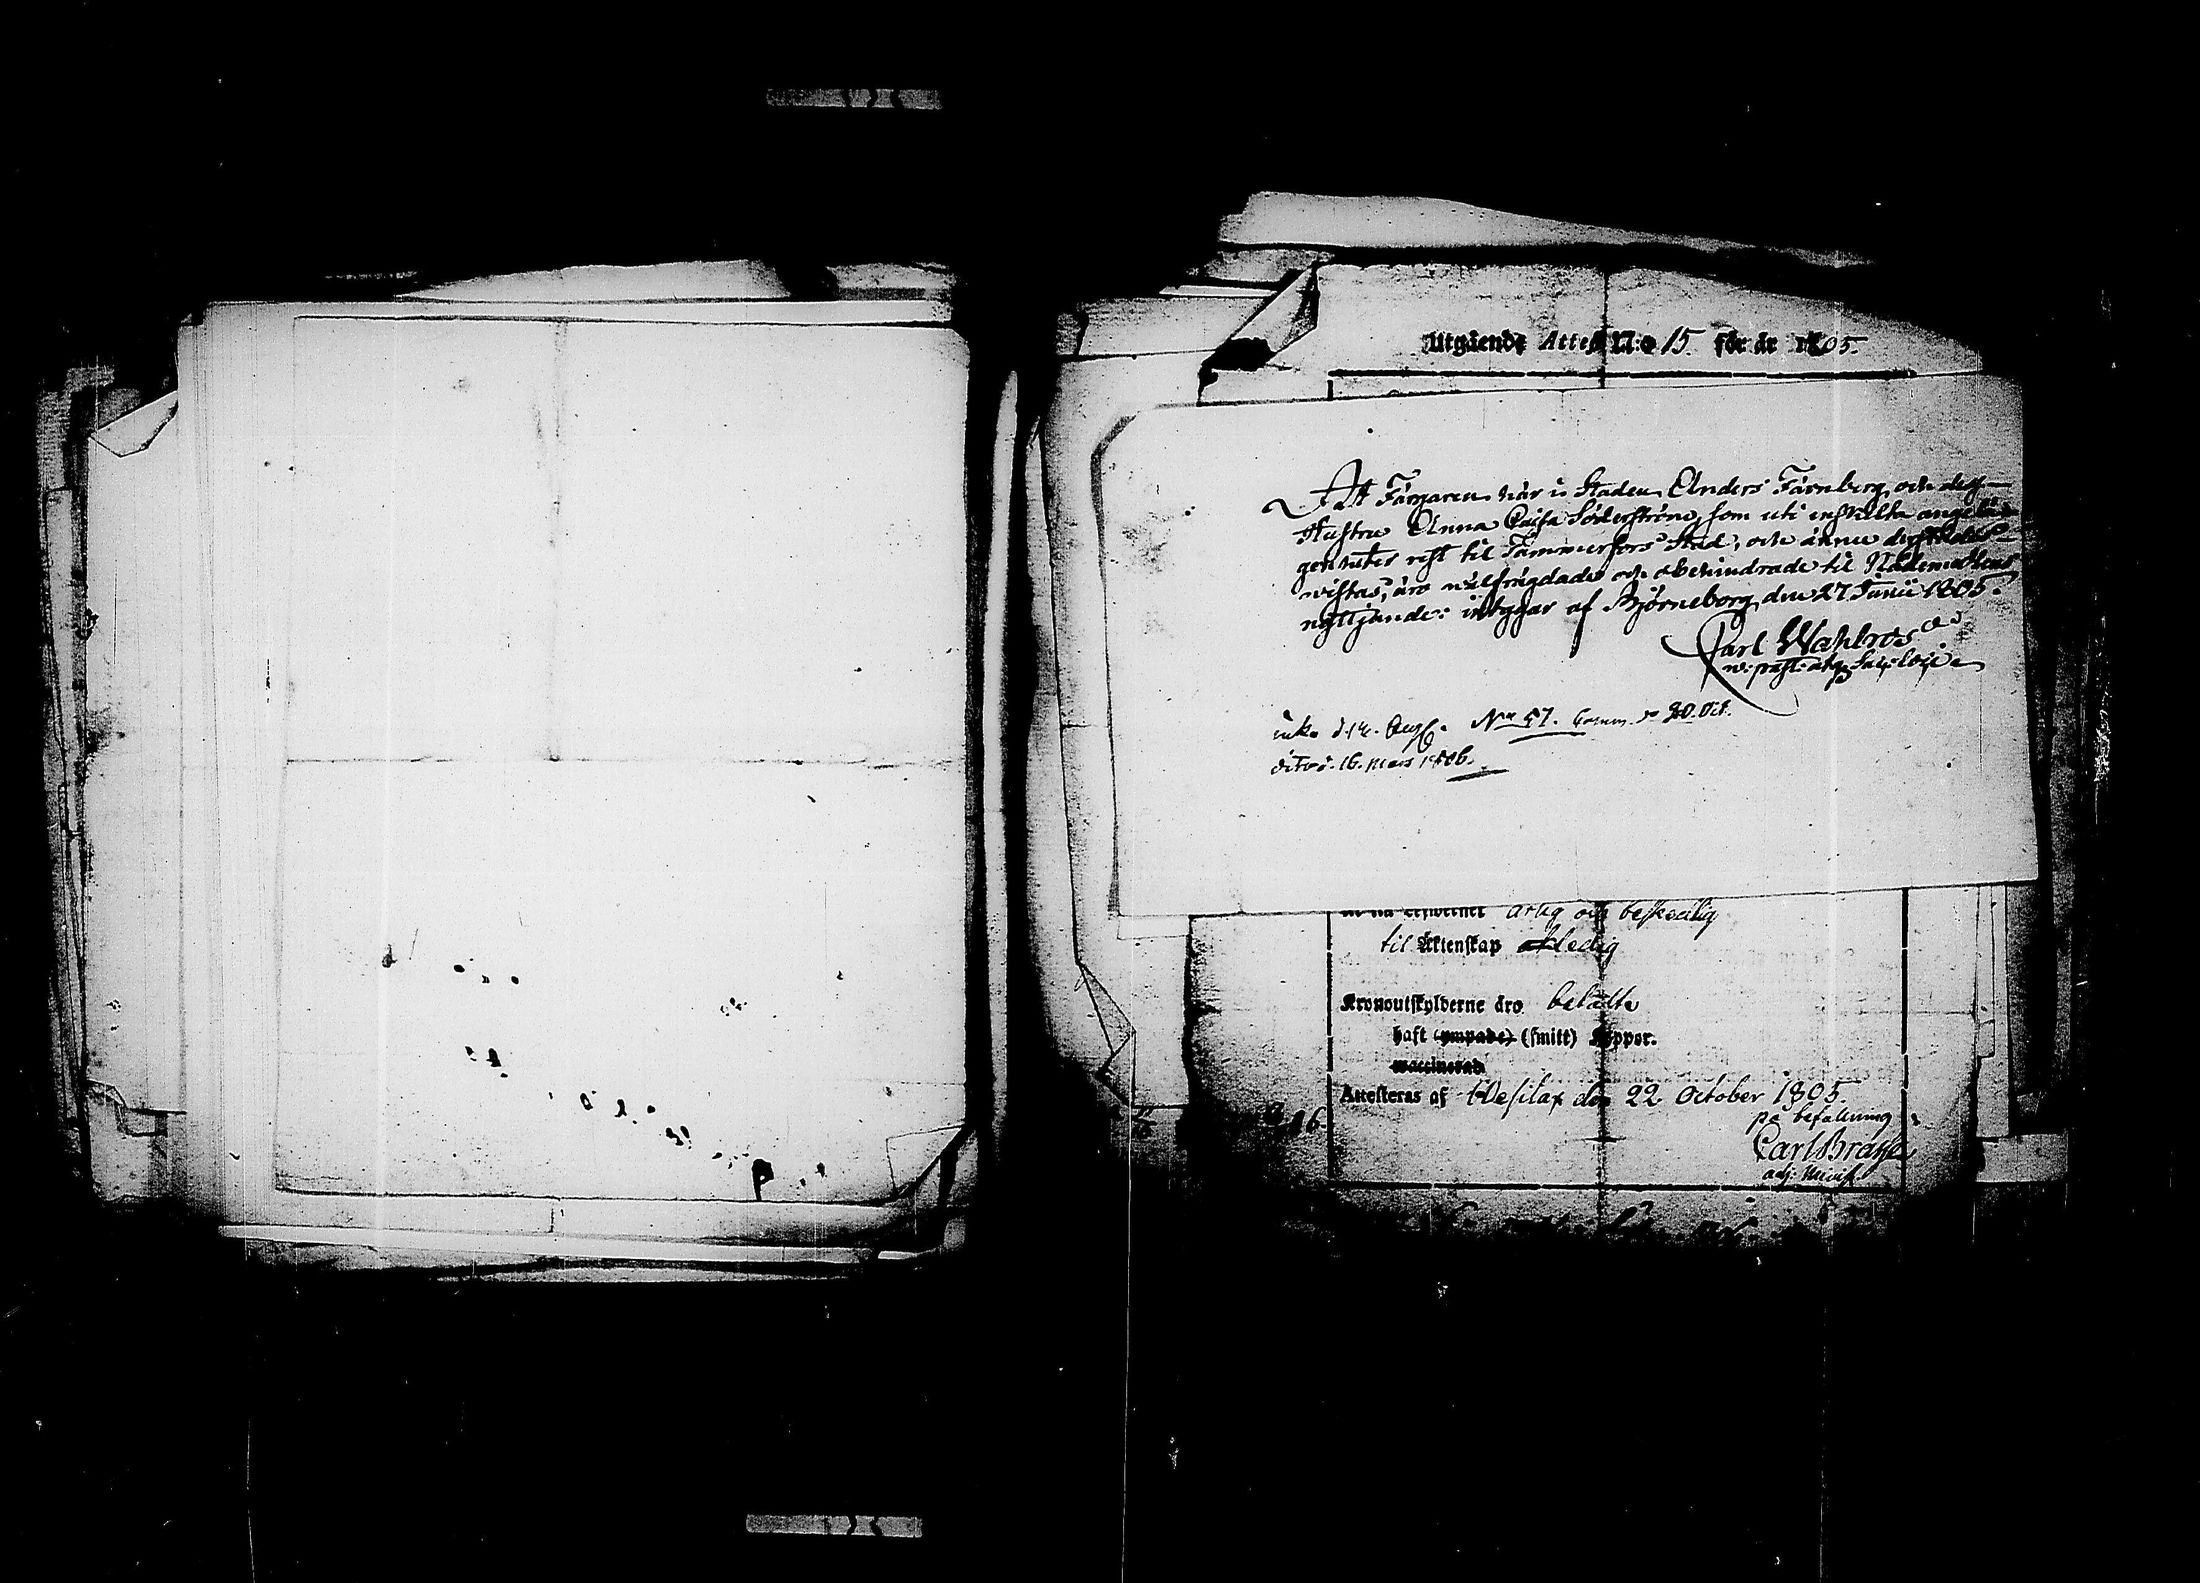 Utgående Attest N:o 15 för år 1805.
Att Färgaren här i Staden Anders Färnberg och deß
Hustru Anna Caisa Söderström, som uti enskilta angelä-
genheter rest til Tammerfors Stad, och ännu derstädes
vistas, äro välfrägdade och obehindrade til Nådemedlens
nyttjande: intygar af Björneborg den 27 Junii 1805.
Carl Wahlroos
v. past.
ink. d. Aug. No 57. 20. Oct.
dito d. 16. Mars 1806.
artig och beskedlig
til Äktenskap ledig
Kronoutskylderne äro betalte
haft (ympade) (smitt) Koppor.
vaccinerad
Attesteras af Wesilax den 22 October 1805.
på befallning
Carl
adj: Minist.
16.